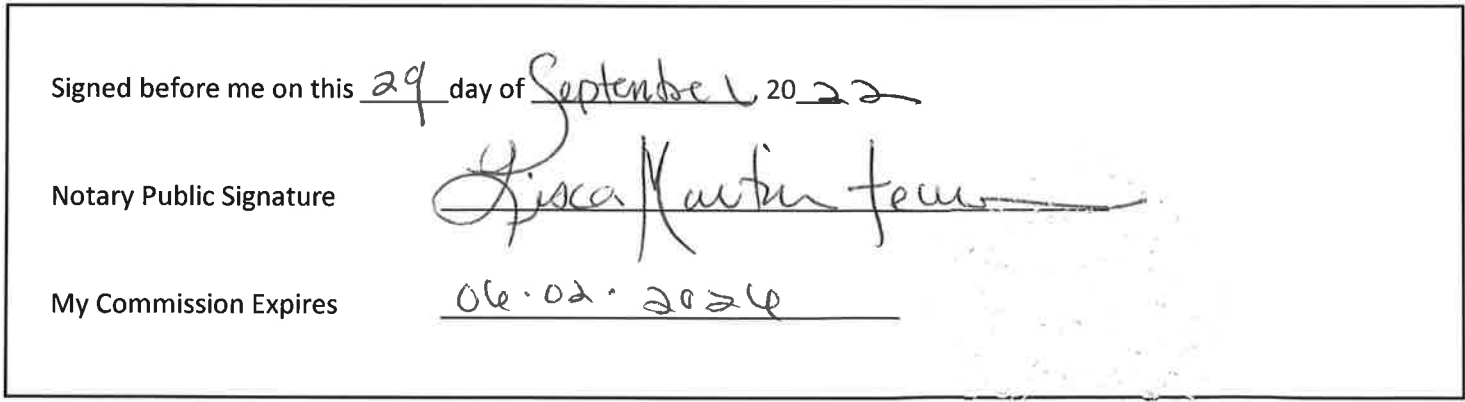 Signed before me on this 29 day of September 2022
Notary Public Signature Lisca Martin
My Commission Expires 06.02.2026